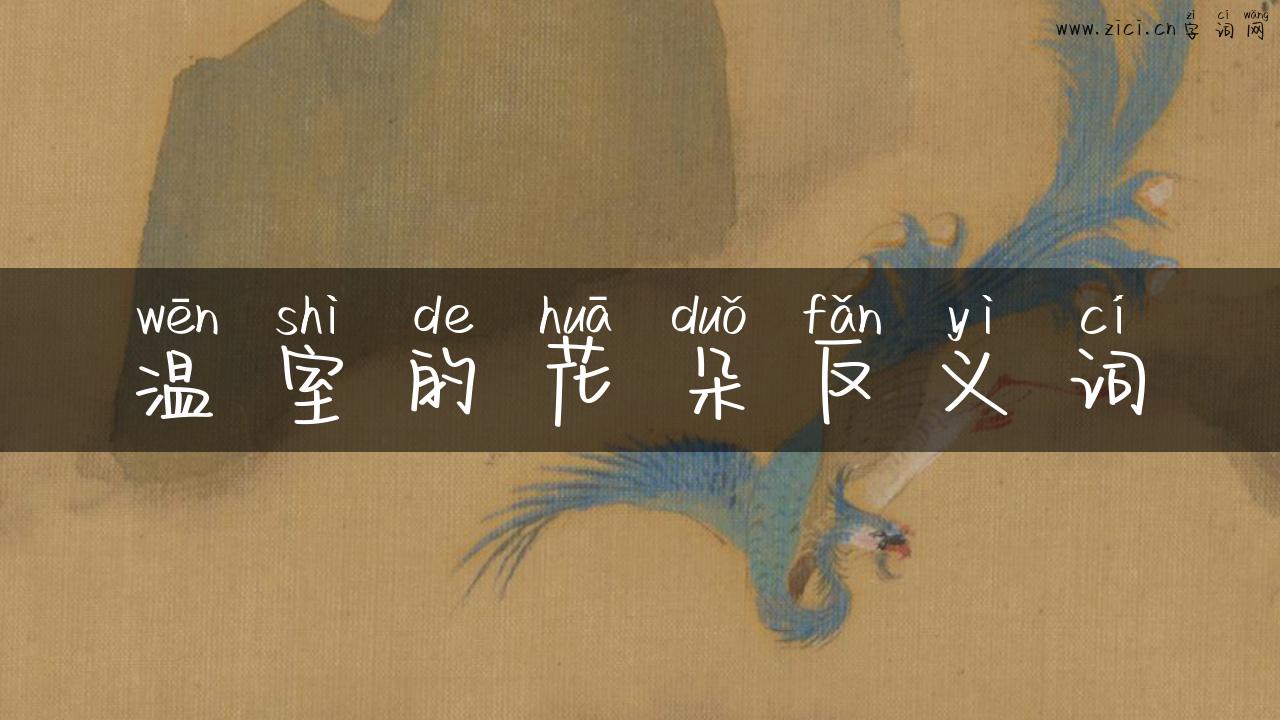 zì cí wǎng
www.zici.cn字词网
wēn shì de huā duǒ fǎn yì cí
温室的花朵反义词